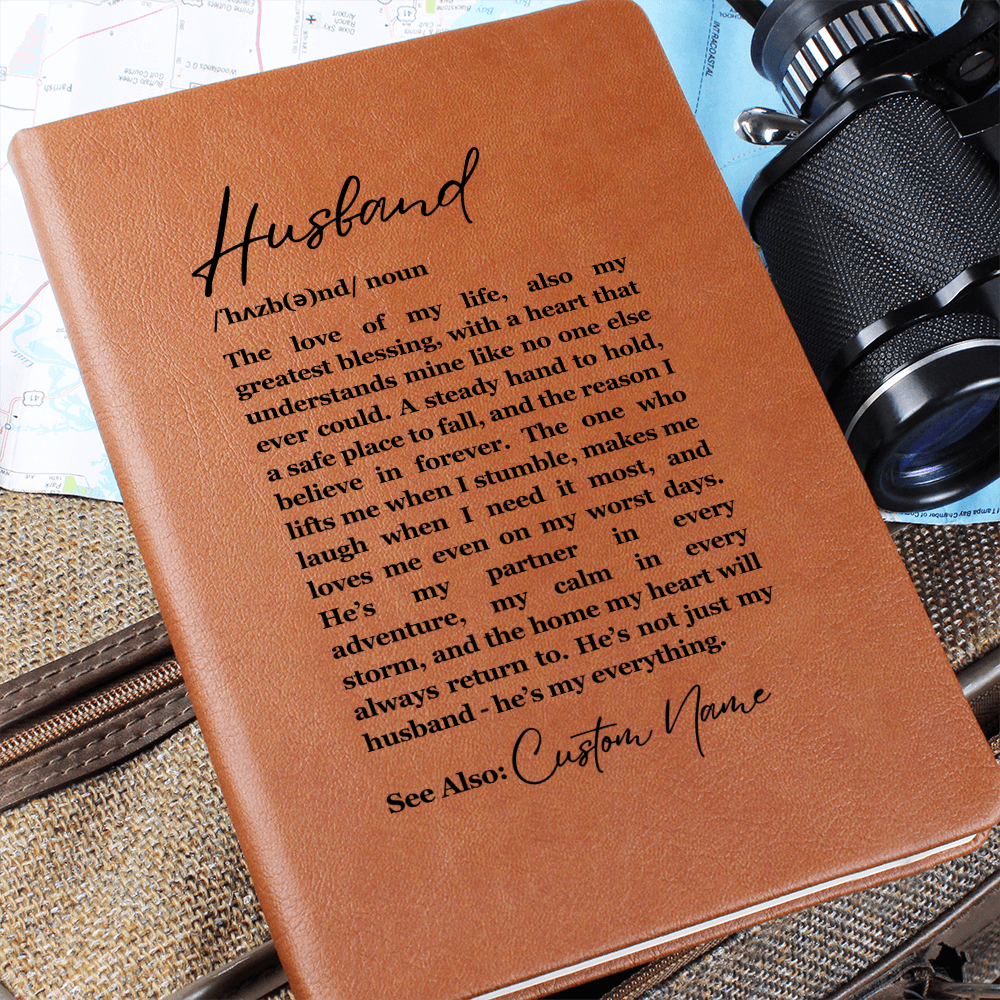 Husband
/ˈhʌzb(ə)nd/ noun
The love of my life, also my
greatest blessing, with a heart that
understands mine like no one else
ever could. A steady hand to hold,
a safe place to fall, and the reason I
believe in forever. The one who
lifts me when I stumble, makes me
laugh when I need it most, and
loves me even on my worst days.
He’s my partner in every
adventure, my calm in every
storm, and the home my heart will
always return to. He’s not just my
husband - he’s my everything.
See Also: Custom Name
Parrish
Buffalo Creek
Golf Course
Woodlands G C
Dixie Sky
Ranch
Airport
41
41
INTRACOASTAL
Tampa Bay Chamber of